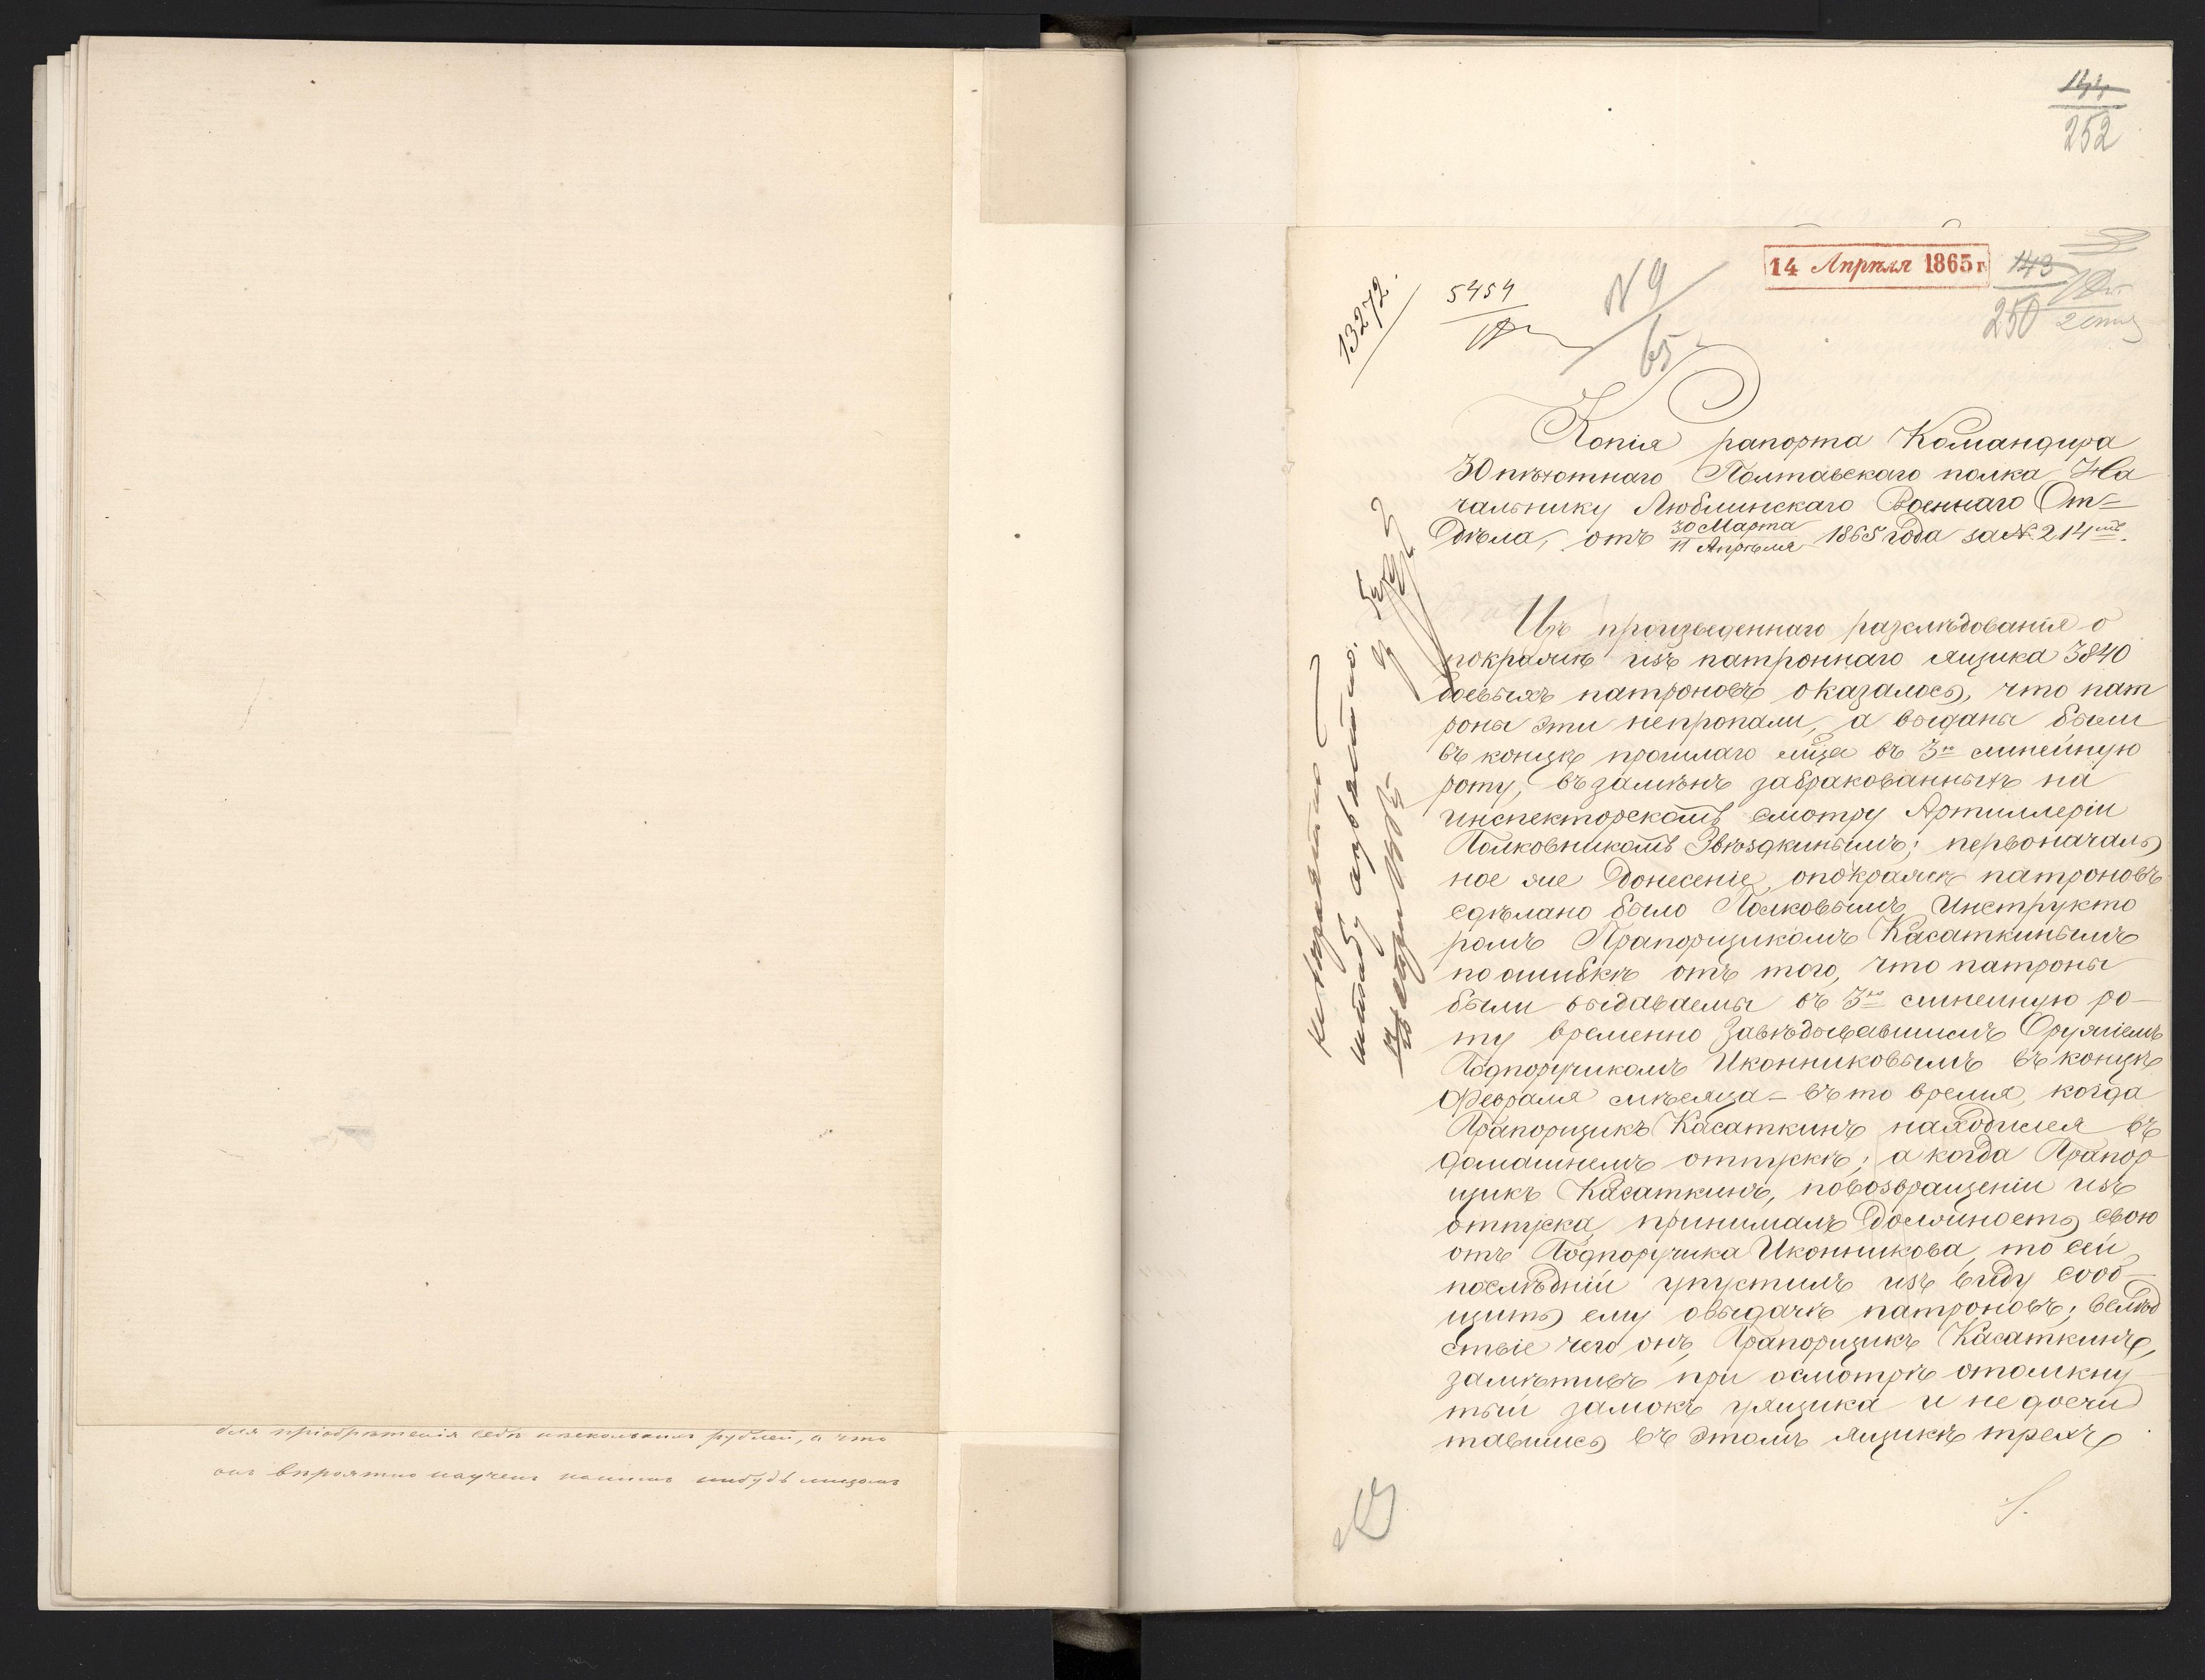 для пріобрѣтенія себѣ нѣсколькихъ рублей, а что
онъ вѣроятно наученъ какимъ нибудь лицомъ
144
252
14 Апрѣля 1865 г.
143
250
13272.
5454
N 9
65
Копія рапорта Командира
30 пѣхотнаго Полтавскаго полка На
чальнику Люблинскаго Военнаго От=
дѣла, отъ 30 Марта / 11 Апрѣля 1865 года за № 214
Изъ произведеннаго разслѣдованія о
покражѣ изъ патроннаго ящика 3840
боевыхъ патроновъ оказалось, что пат
роны эти непропали, а выданы были
въ концѣ прошлаго мца въ 3ю линейную
роту, въ замѣнъ забракованныхъ на
инспекторскомъ смотру Артиллеріи
Полковникомъ Звѣздкинымъ; первоначаль
ное же донесеніе опокражѣ патроновъ
сдѣлано было Полковымъ Инструкто
ромъ Прапорщикомъ Касаткинымъ
по ошибкѣ отъ того, что патроны
были выдаваемы въ 3ю линейную ро-
ту временно Завѣдывавшимъ Оружіемъ
Подпоручикомъ Иконниковымъ въ концѣ
Февраля мѣсяца - въ то время, когда
Прапорщикъ Касаткинъ находился въ
домашнемъ отпускѣ; а когда Прапор
щикъ Касаткинъ, повозвращеніи изъ
отпуска, принималъ должность свою
отъ Подпоручика Иконникова, то сей
послѣдній упустилъ изъ виду сооб-
щить ему овыдачѣ патроновъ; вслѣд
ствіе чего онъ, Прапорщикъ Касаткинъ,
замѣтивъ при осмотрѣ отомкну
тый замокъ уящика и не досчи
тавшись въ этомъ ящикѣ трехъ